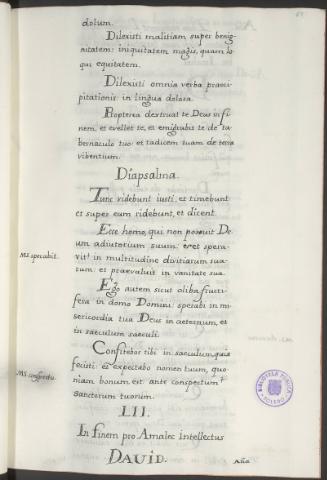 dolum.
Dilexisti malitiam super benig
nitatem: iniquitatem magis, quam lo
qui equitatem.
Dilexisti omnia verba praeci
pitationis in lingua dolosa.
Propterea destruat te Deus in fi
nem, et evellet te, et emigrabit te de ta
bernaculo tuo: et radicem tuam de terra
viventium.
Diapsalma.
Tunc videbunt iusti, et timebunt
et super eum ridebunt, et dicent.
Ecce homo, qui non posuit De
um adiutorium suum: et spera
MS. sperabit.
vit in multitudine divitiarum sua
rum: et praevaluit in vanitate sua.
Ego autem sicut oliba fructi
fera in domo Domini: sperabi in mi
sericordia tua Deus in aeternum, et
in saeculum saeculi.
Confitebor tibi in saeculum, quia
fecisti: et expectabo nomen tuum, quo
niam bonum est ante conspectum
sanctorum tuorum.
LII.
In finem pro Amalec Intellectus
DAUID.
BIBLIOTECA PUBLICA
TOLEDO